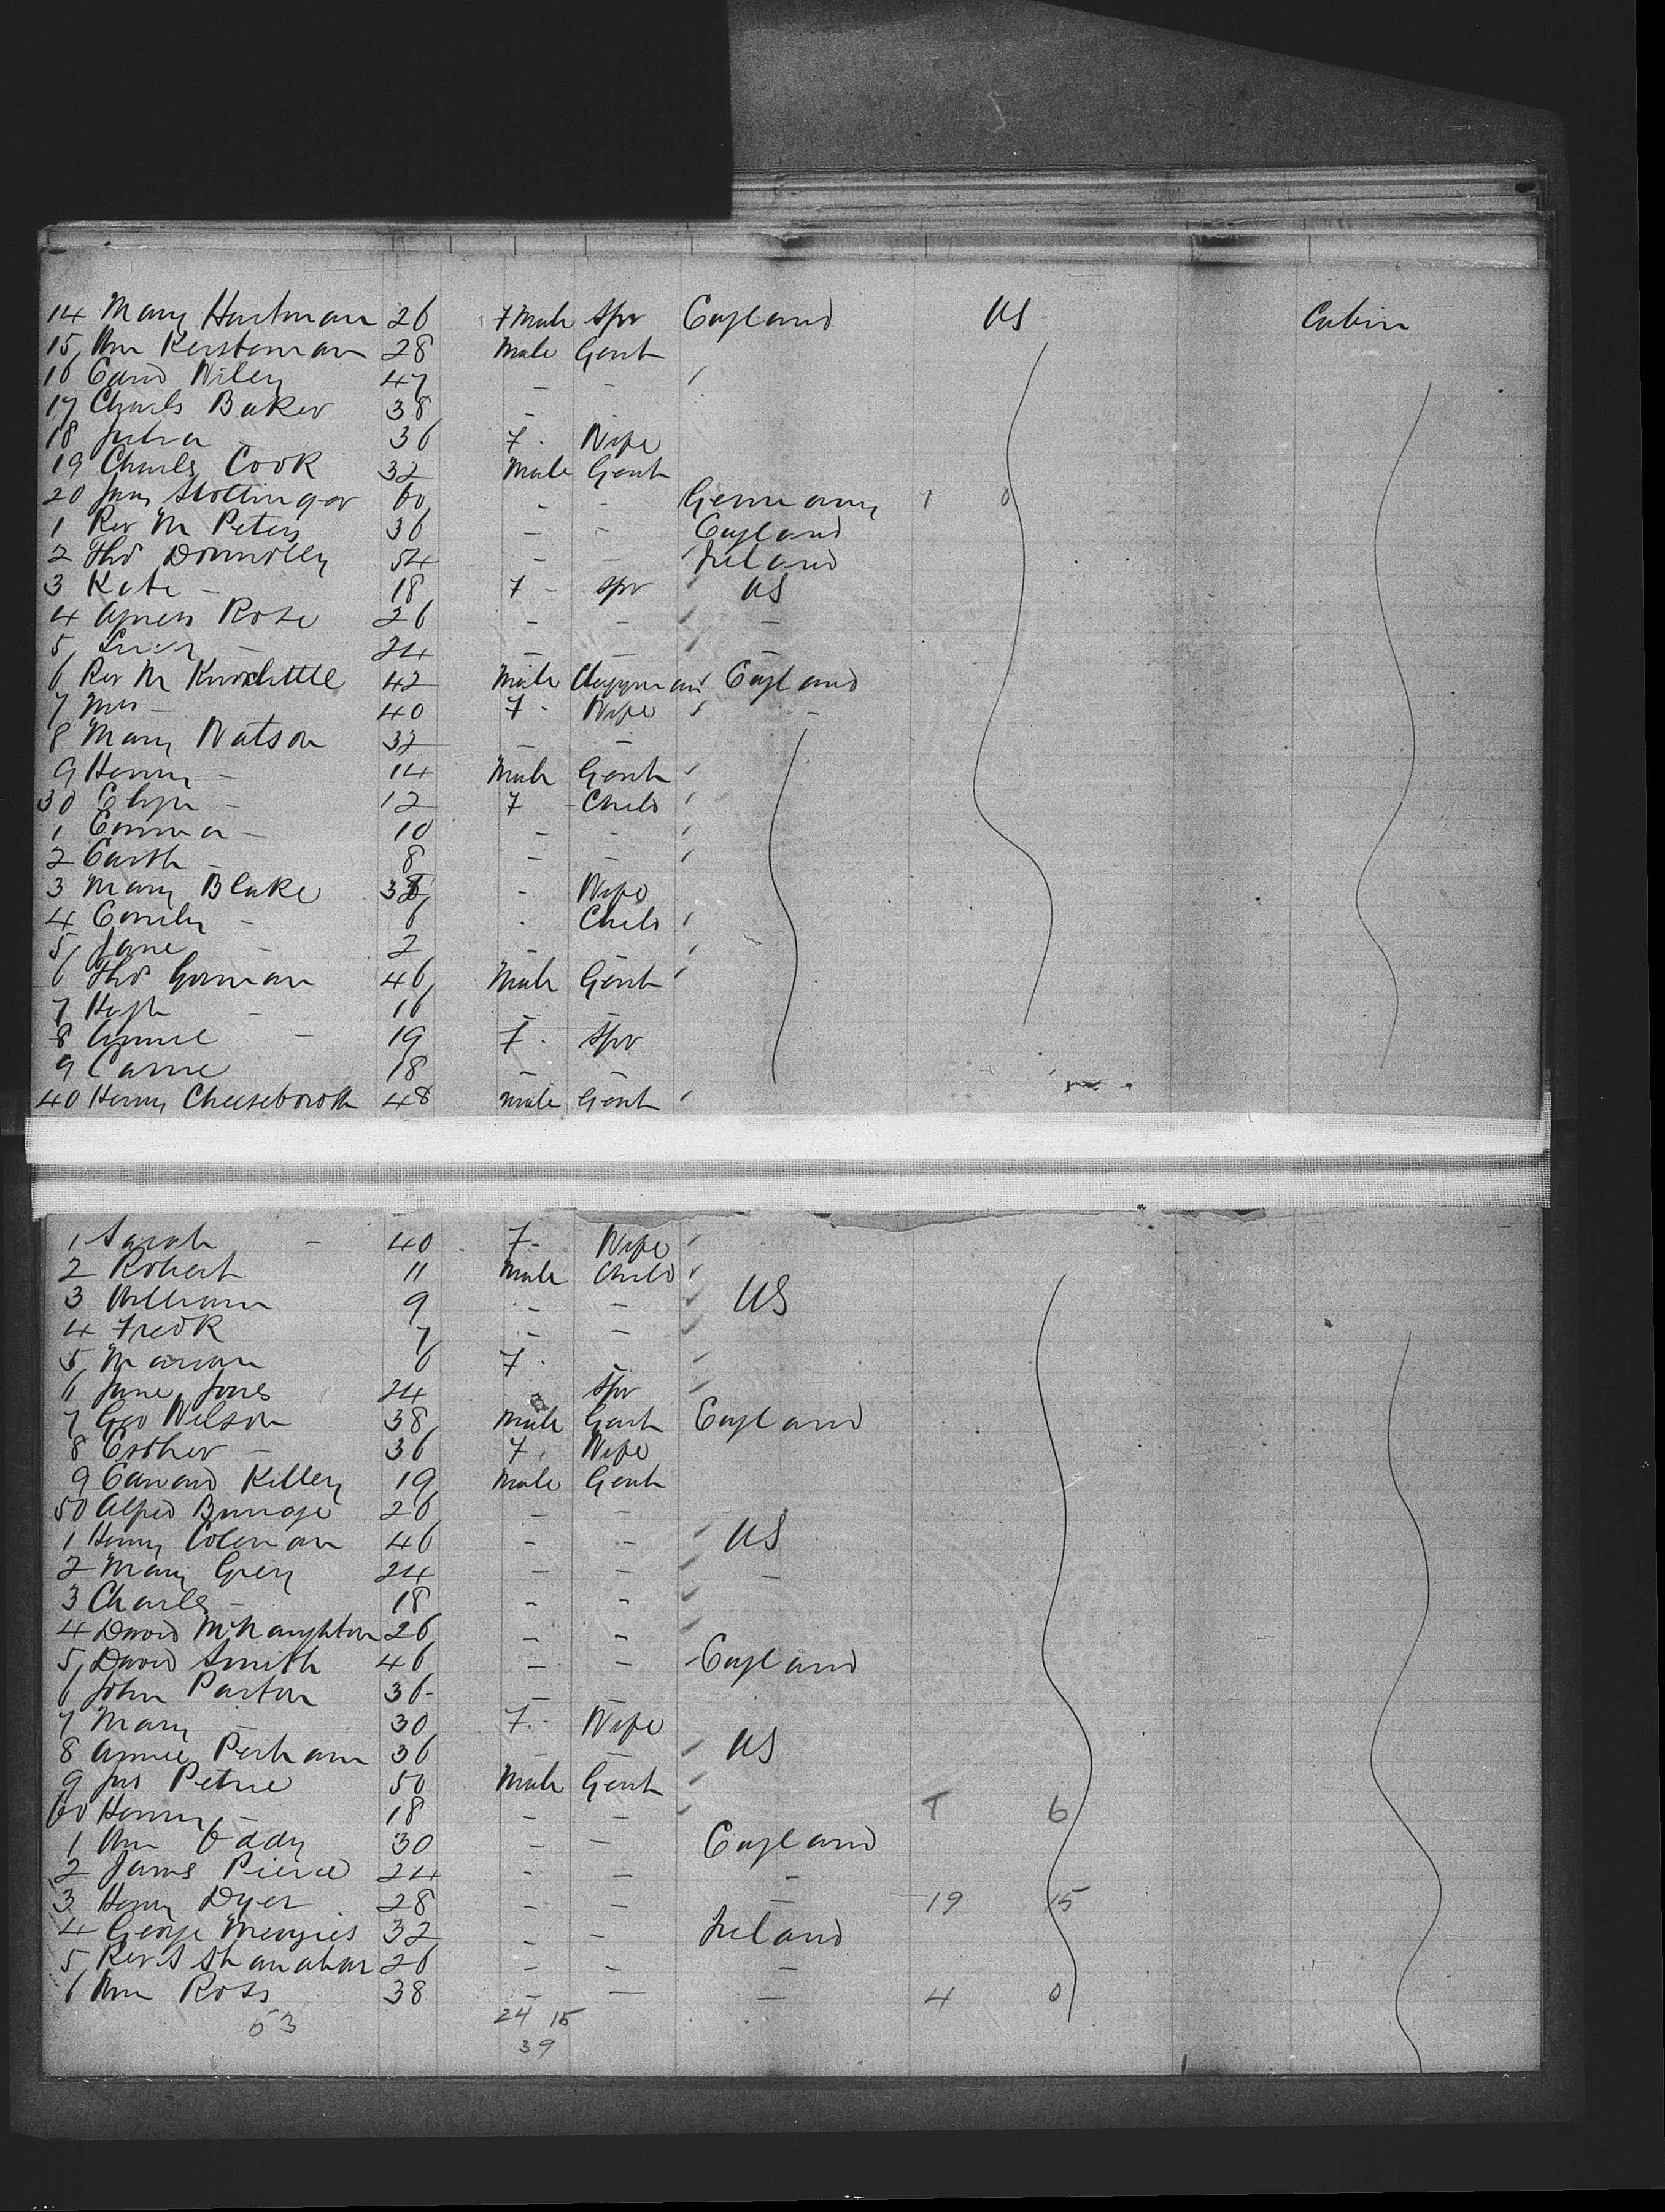 14 Mary Hartman 26 Fmale Spr England US Cabin
15 Wm Kersteman 28 Male Gent
16 Edwd Wiley 47 - -
17 Charls Baker 38 -
18 Julia - 36 F - Wife
19 Charls Cook 32 Male Gent
20 Jam 60 - - Germany 1 0
1 Rev Mr Peters 36 - - England
2 Thos Donnolly 54 - - Ireland
3 Kate - 18 F - Spr US
4 Agness Rose 26 - - -
5 - 24 - - -
6 Rev Mr 42 Male Clergyman England
7 Mrs - 40 F - Wife -
8 Mary Watson 32 - -
9 Henry - 14 Male Gent
30 Eliza - 12 F - Child
1 Emma - 10 - -
2 Edith - 8 - -
3 Mary Blake 38 - Wife
4 Emily - 6 - Child
5 Jane - 2 -
6 Thos Gorman 46 Male Gent
7 Hugh - 16 -
8 Annie - 19 F - Spr
9 Carrie 18 - -
40 Henry Cheeseboroth 48 Male Gent
1 Sarah - 40 F - Wife
2 Robert 11 Male Child
3 William 9 - - US
4 Fredk 7 - -
5 Marian 6 F -
6 Jane Jones 24 - Spr
7 Geo Wilson 38 Male Gent England
8 Esther - 36 F - Wife
9 Edward Killey 19 Male Gent
50 Alfred 26 - -
1 Henry Coleman 46 - - US
2 Mary Grey 24 - - -
3 Charls - 18 - -
4 David McNaughton 26 - -
5 David Smith 46 - - England
6 John Parton 36 - - -
7 Mary - 30 F - Wife
8 Annie Perham 36 - - US
9 Jas Petrie 50 Male Gent
60 Henry - 18 - - 6
1 Wm Eddy 30 - - England
2 James Pierce 24 - - -
3 Henry Dyer 28 - - - 19 15
4 George Menzies 32 - - Ireland
5 Rev S Shanahan 26 - - -
6 Wm Ross 38 - - - 4 0
53 24 15
39